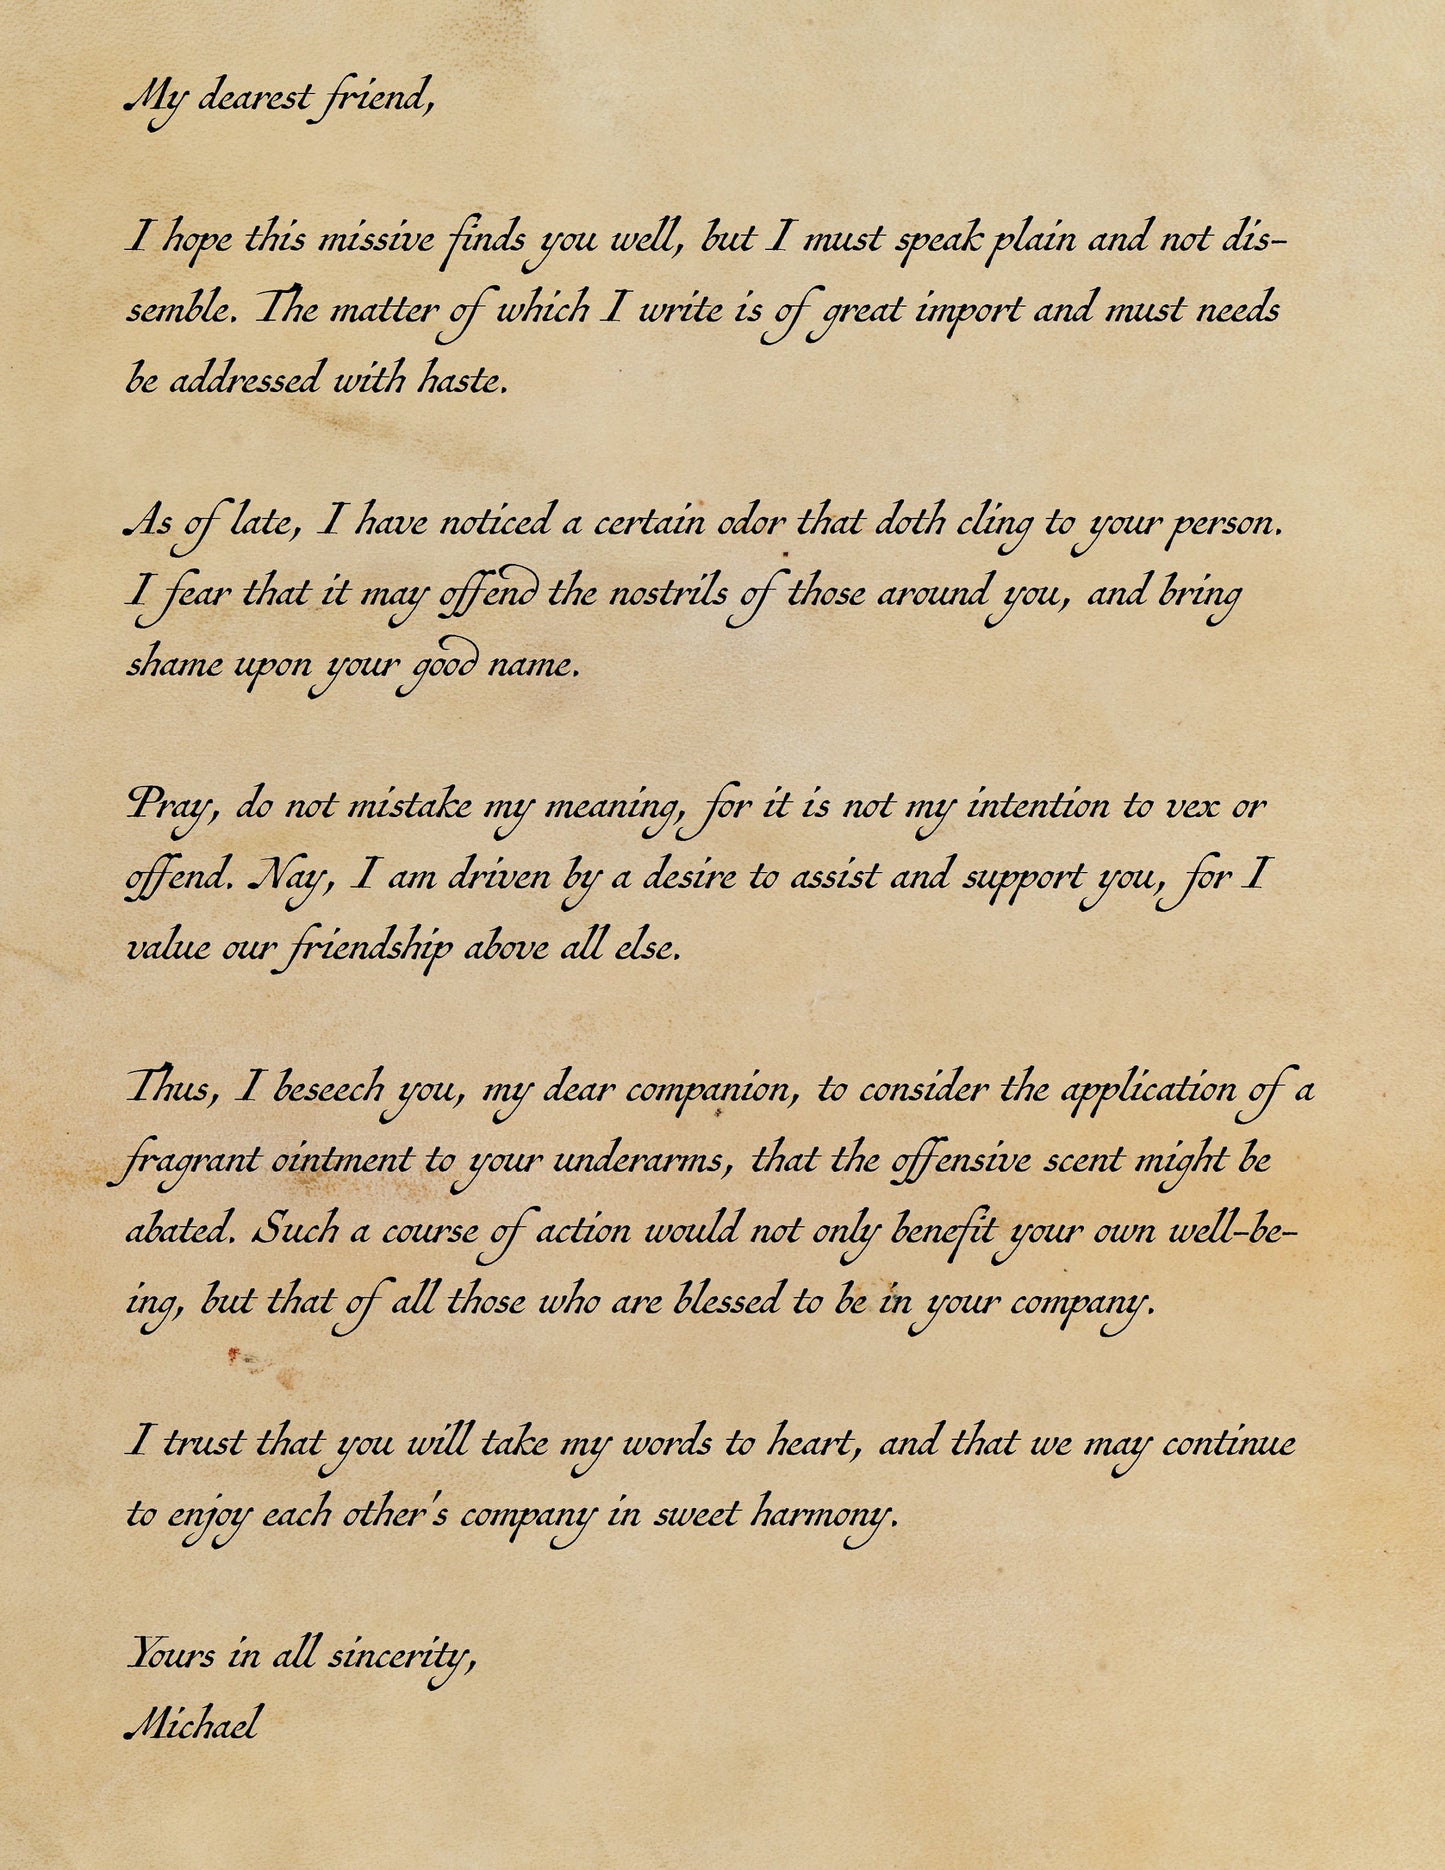 My dearest friend,
I hope this missive finds you well, but I must speak plain and not dis-
semble. The matter of which I write is of great import and must needs
be addressed with haste.
As of late, I have noticed a certain odor that doth cling to your person.
I fear that it may offend the nostrils of those around you, and bring
shame upon your good name.
Pray, do not mistake my meaning, for it is not my intention to vex or
offend. Nay, I am driven by a desire to assist and support you, for I
value our friendship above all else.
Thus, I beseech you, my dear companion, to consider the application of a
fragrant ointment to your underarms, that the offensive scent might be
abated. Such a course of action would not only benefit your own well-be-
ing, but that of all those who are blessed to be in your company.
I trust that you will take my words to heart, and that we may continue
to enjoy each other's company in sweet harmony.
Yours in all sincerity,
Michael